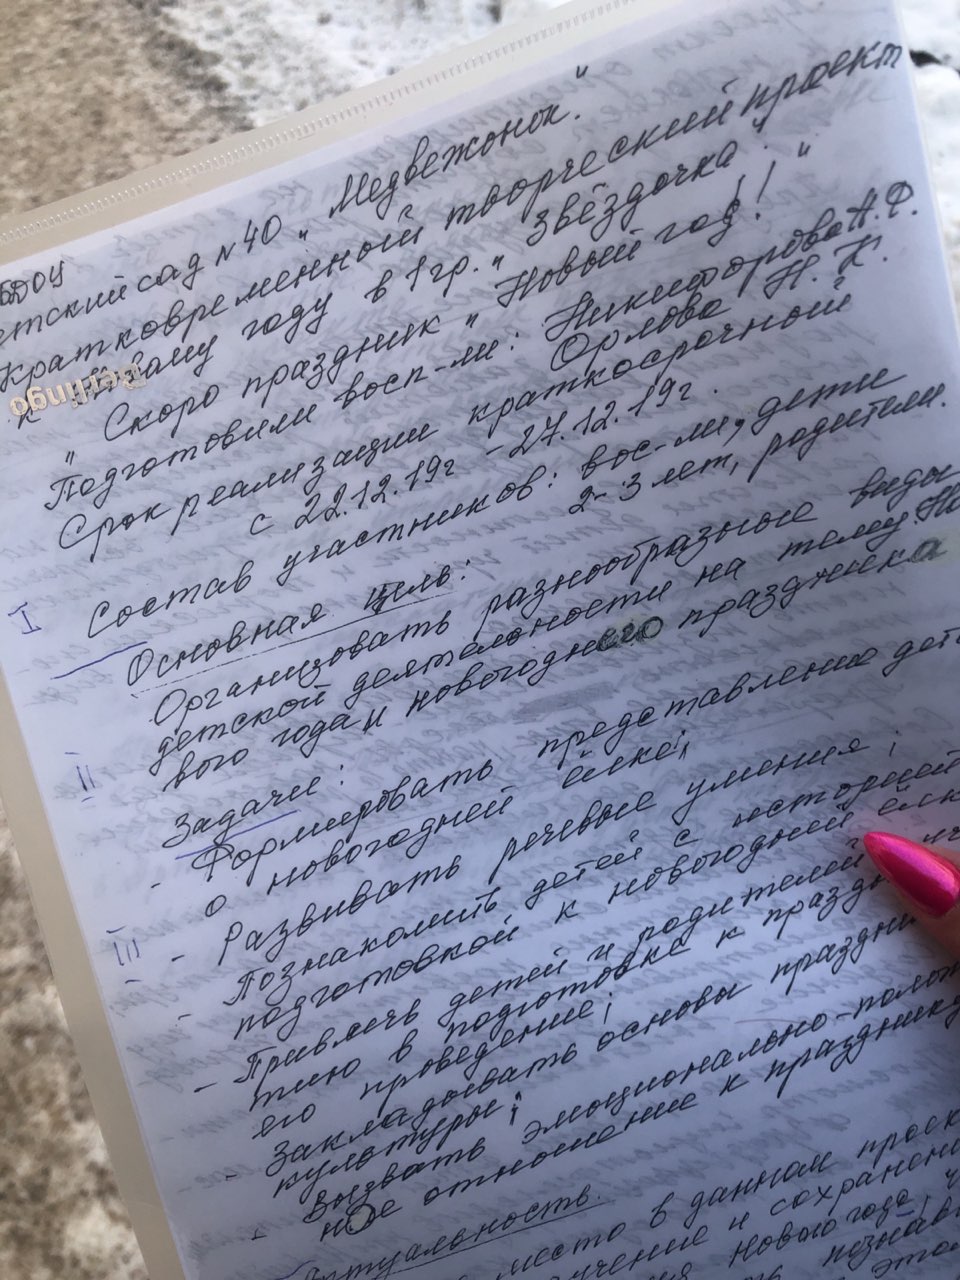 БДОУ
етский сад №40 „Медвежонок."
Кратковременный творческий проект
к новому году в 1 гр. „Звёздочка".
„Скоро праздник „Новый год!!"
Подготовили восп-ли: Никифорова А.Ф.
Орлова Н. К.
Срок реализации краткосрочный
с 22.12.19г - 27.12.19г.
Состав участников: вос-ли, дети
2-3 лет, родители.
I Основная цель:
Организовать разнообразные виды
детской деятельности на тему: Но
вого года и новогоднего праздника
II Задачи:
- Формировать представление дет
о новогодней ёлке;
- Развивать речевые умения;
III - Познакомить детей с историей
подготовкой к новогодней ёлк
- Привлечь детей и родителей
тию в подготовке к празд
его проведение;
- Закладывать основы праздни
культуры;
- Вызвать эмоционально-полож
ное отношение к празднику
ктуальность.
место в данном проек
и сохранени
нового года,
познав
Berlingo